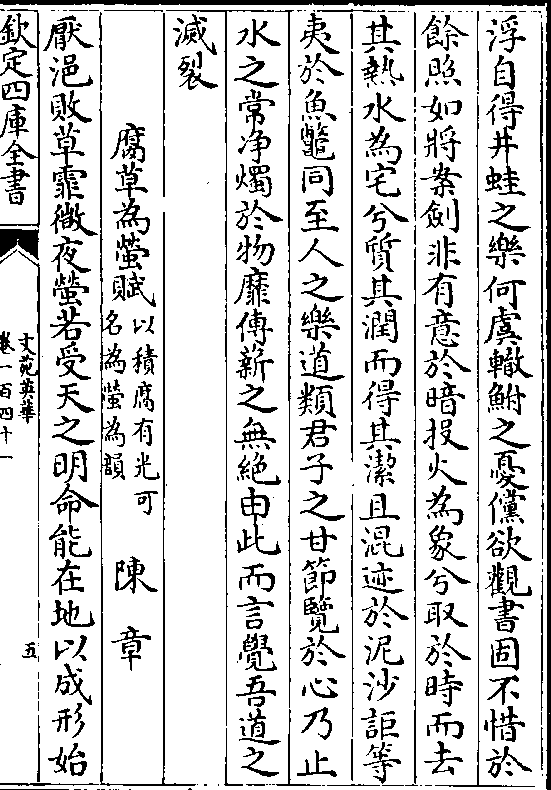 浮自得井蛙之樂何虞轍鮒之憂儻欲觀書固不惜於
餘照如將案劍非有意於暗投火為象兮取於時而去
其熱水為宅兮質其潤而得其潔且混迹於泥沙詎等
夷於魚鼈同至人之樂道類君子之甘節覽於心乃止
水之常净燭於物靡傳薪之無絶由此而言覺吾道之
滅裂
腐草為螢賦以積腐有光可名為螢為韻 陳章
厭浥敗草霏微夜螢若受天之明命能在地以成形始
欽定四庫全書
文苑英華
卷一百四十一
五